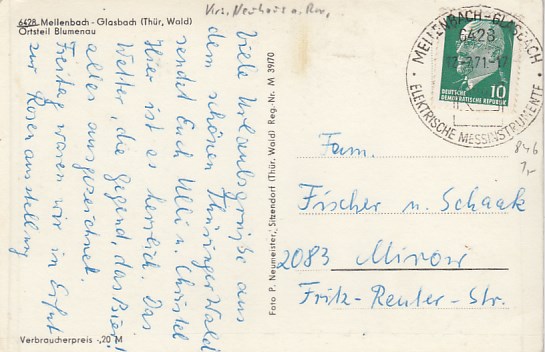 6428 Mellenbach - Glasbach (Thür, Wald)
Ortsteil Blumenau
Krs. Neuhaus a. Rw,
Viele Urlaubsgrüße aus
dem schönen Thüringer Wald
sendet Euch Ulli u. Christel
Hier ist es herrlich. Das
Wetter, die Gegend, das Bier!
alles ausgezeichnet.
Freitag waren wir in Erfurt
zur Rosenausstellung
Verbraucherpreis -,20 M
Foto P. Neumeister, Sitzendorf (Thür. Wald) Reg.-Nr. M 39/70
MELLENBACH-GLASBACH
6428
ELEKTRISCHE MESSINSTRUMENTE
DEUTSCHE
DEMOKRATISCHE REPUBLIK
10
846
1,-
Fam.
Fischer u. Schaak
2083 Mirow
Fritz-Reuter-Str.